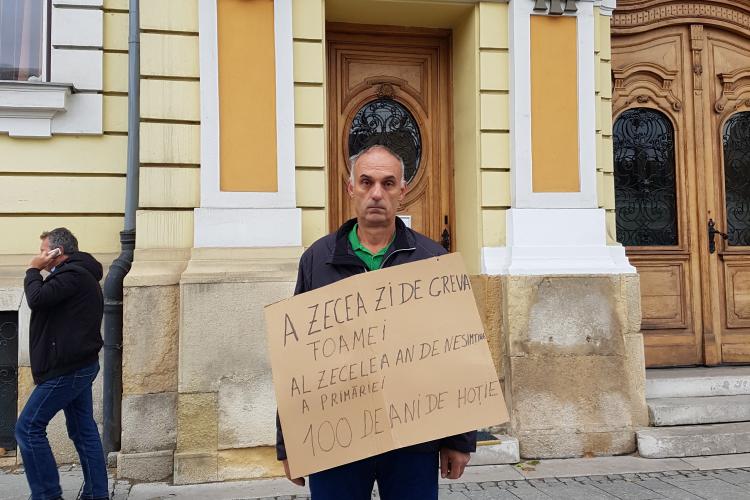 A ZECEA ZI DE GREVA
FOAMEI
AL ZECELEA AN DE NESIMȚIRE
A PRIMĂRIEI
100 DE ANI DE HOȚIE